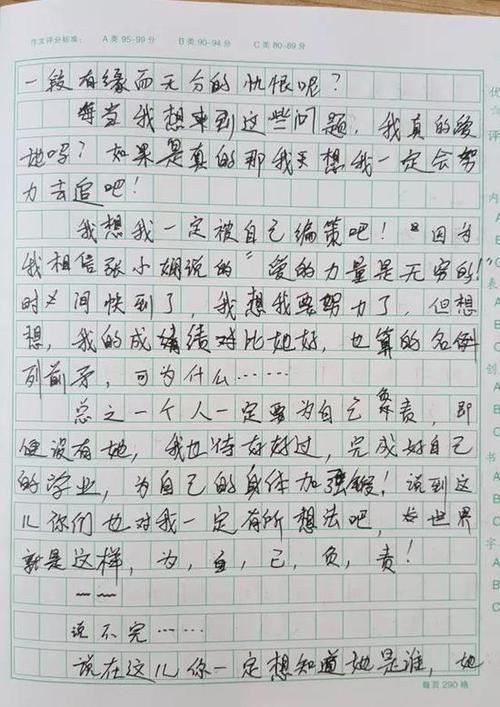 作文评分标准： A类 95-99分 B类 90-94分 C类 80-89分
一段有缘而无分的仇恨呢？
每当我想来到这些问题，我真的爱
她吗？如果是真的那我天想我一定会努
力去追吧！
我想我一定被自己编策吧！“因为
我相信张小娴说的“爱的力量是无穷的！
时间快到了，我想我要努力了，但想
想，我的成绩对比她好，也算的名例
列前矛，可为什么……
总之一个人一定要为自己负责，即
便没有她，我也待好好过，完成好自己
的学业，为自己的身体加强锻！说到这
儿你们也对我一定有所想法吧，世界
就是这样，为，自，己，负，责！
——
说不完……
说在这儿你一定想知道她是谁，她
每页290格
优
☆
评
内
A
B
C
表
A
B
C
创
A
B
C
书
A
字
B
C